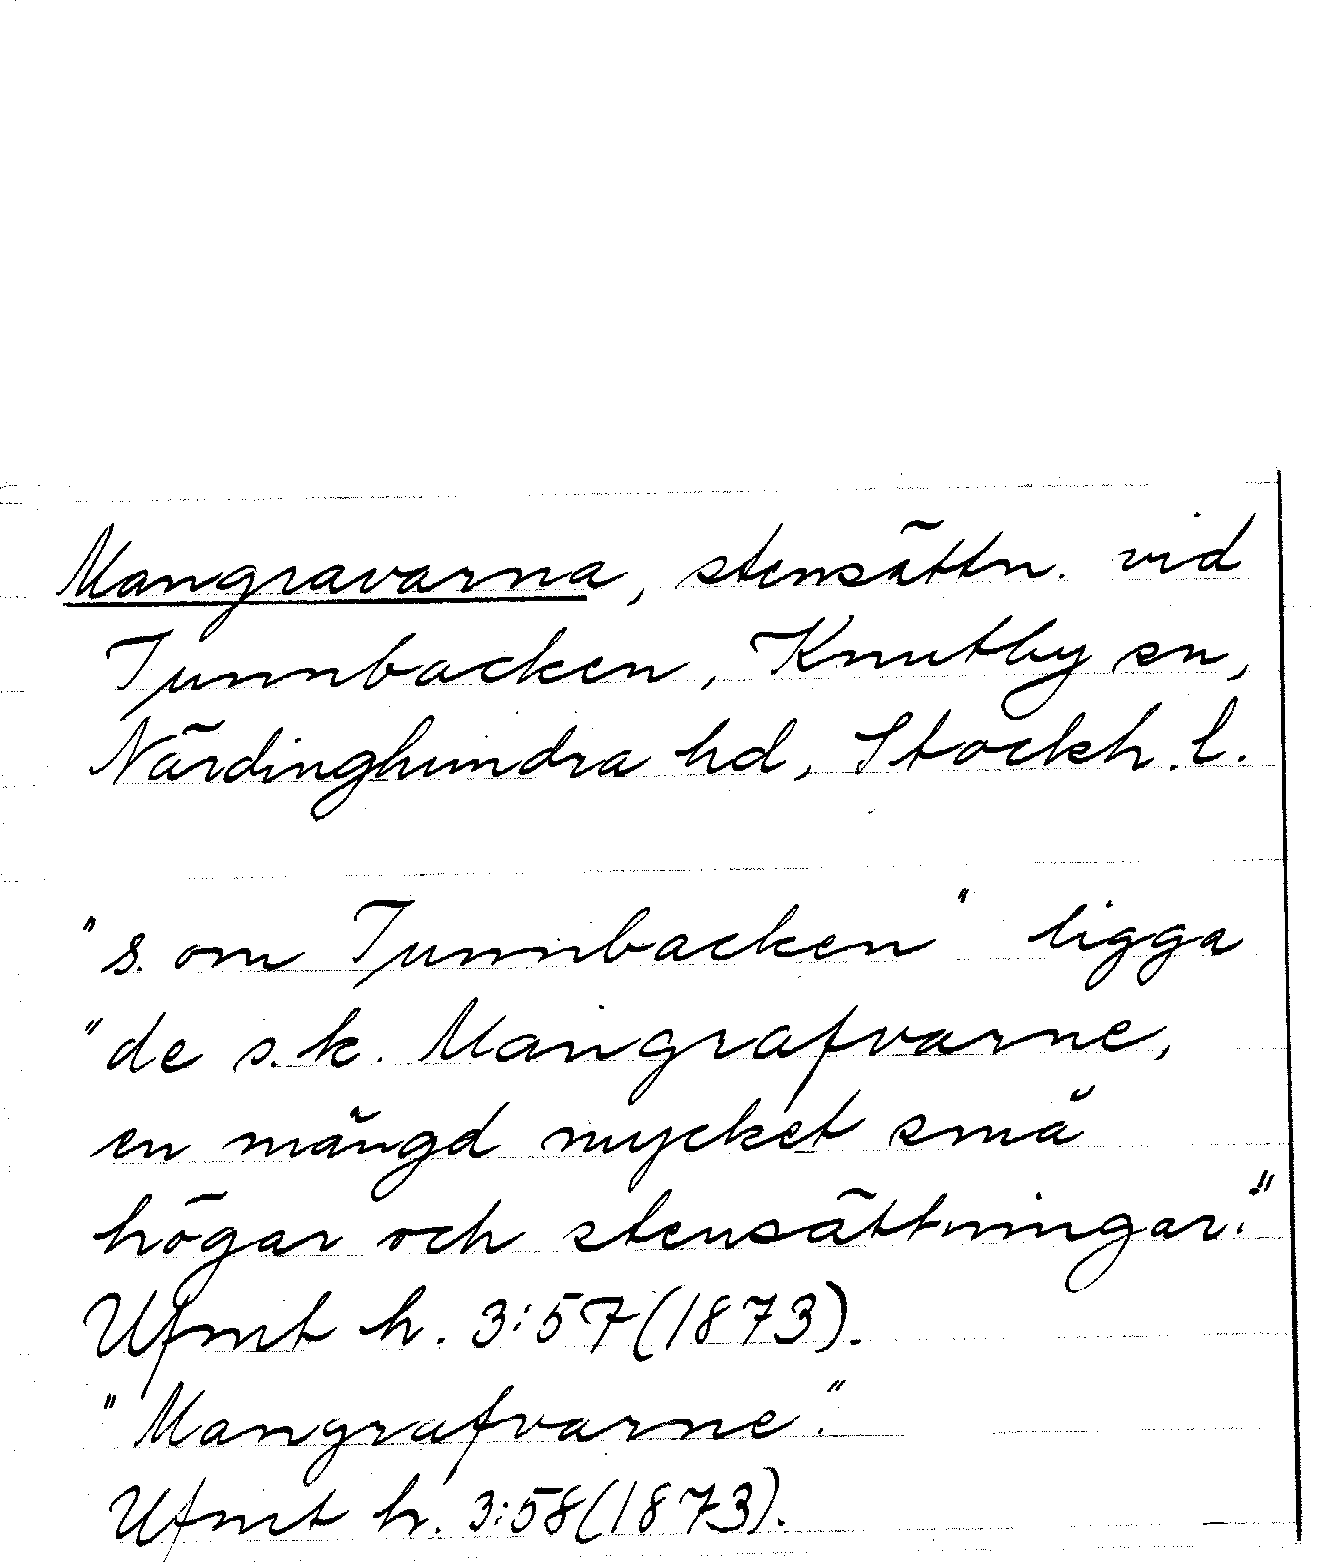 Mangravarna, stensättn. vid
Tunnbacken, Knutby sn,
Närdinghundra hd, Stockh.l.
"s. om Tunnbacken" ligga
"de s.k. Mangrafvarne,
en mängd mycket små
högar och stensättningar."
Ufmt h. 3:57(1873).
"Mangrafvarne."
Ufmt h. 3:58(1873).